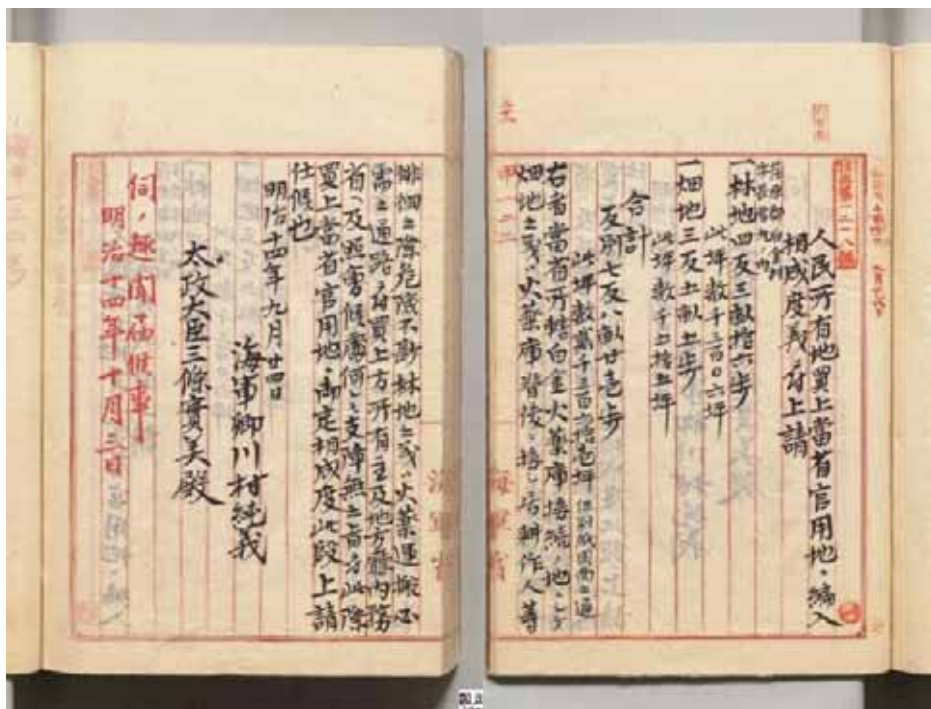 人民所有地買上當省官用地ヘ編入
相成度義ニ付上請
一林地四反三畝拾六歩
此坪数千三百〇六坪
一畑地三反五畝五歩
此坪数千五拾五坪
合計
反別七反八畝廿壱歩
此坪数貳千三百六拾壱坪 但別紙圖面之通
右者當省所轄白金火薬庫接続ノ地ニシテ
畑地之義ハ火薬庫背後ニ接シ居耕作人等
徘徊之際危険不尠林地之義ハ火薬運搬必
需之通路ニ付買上方所有主及地方廳内務
省ヘ及照會候處何レモ支障無之旨ニ付此際
買上當省官用地ニ御定相成度此段上請
仕候也
明治十四年九月廿四日
海軍卿川村純義
太政大臣三條實美殿
伺ノ趣聞届候事
明治十四年十月三日
海軍省